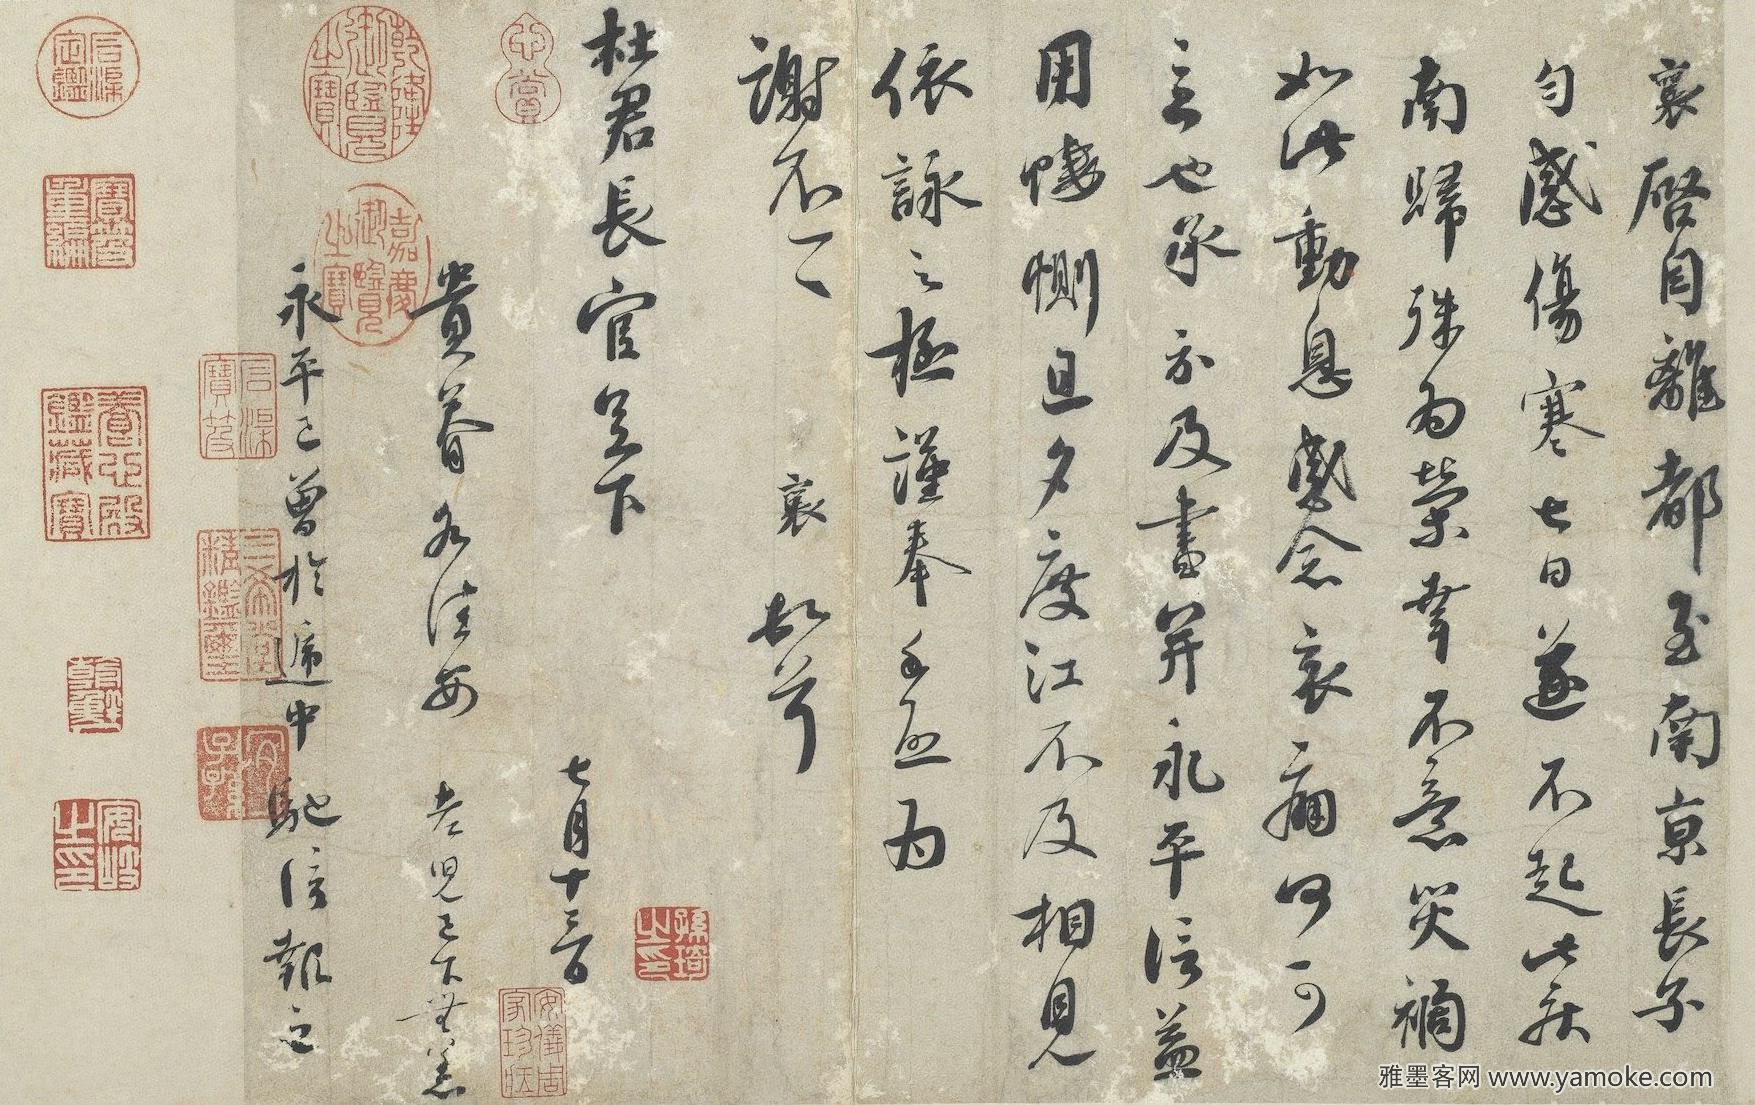 襄啓自離都至南京長子
勻感傷寒七日遂不起此疾
南歸殊爲榮幸不意災禍
如此動息感念哀痛何可
言也承示及書并永平信益
用悽惻旦夕度江不及相見
依詠之極謹奉手啟爲
謝不一一 襄頓首
杜君長官足下 七月十三日
貴眷各佳安 老兒已下無恙
永平已曾於遞中馳信報之
乾隆御覽之寶
嘉慶御覽之寶
心賞
石渠寶笈
三希堂精鑑璽
宜子孫
石渠定鑑
寶笈重編
養心殿鑑藏寶
安岐之印
安儀周家珍藏
雅墨客网 www.yamoke.com